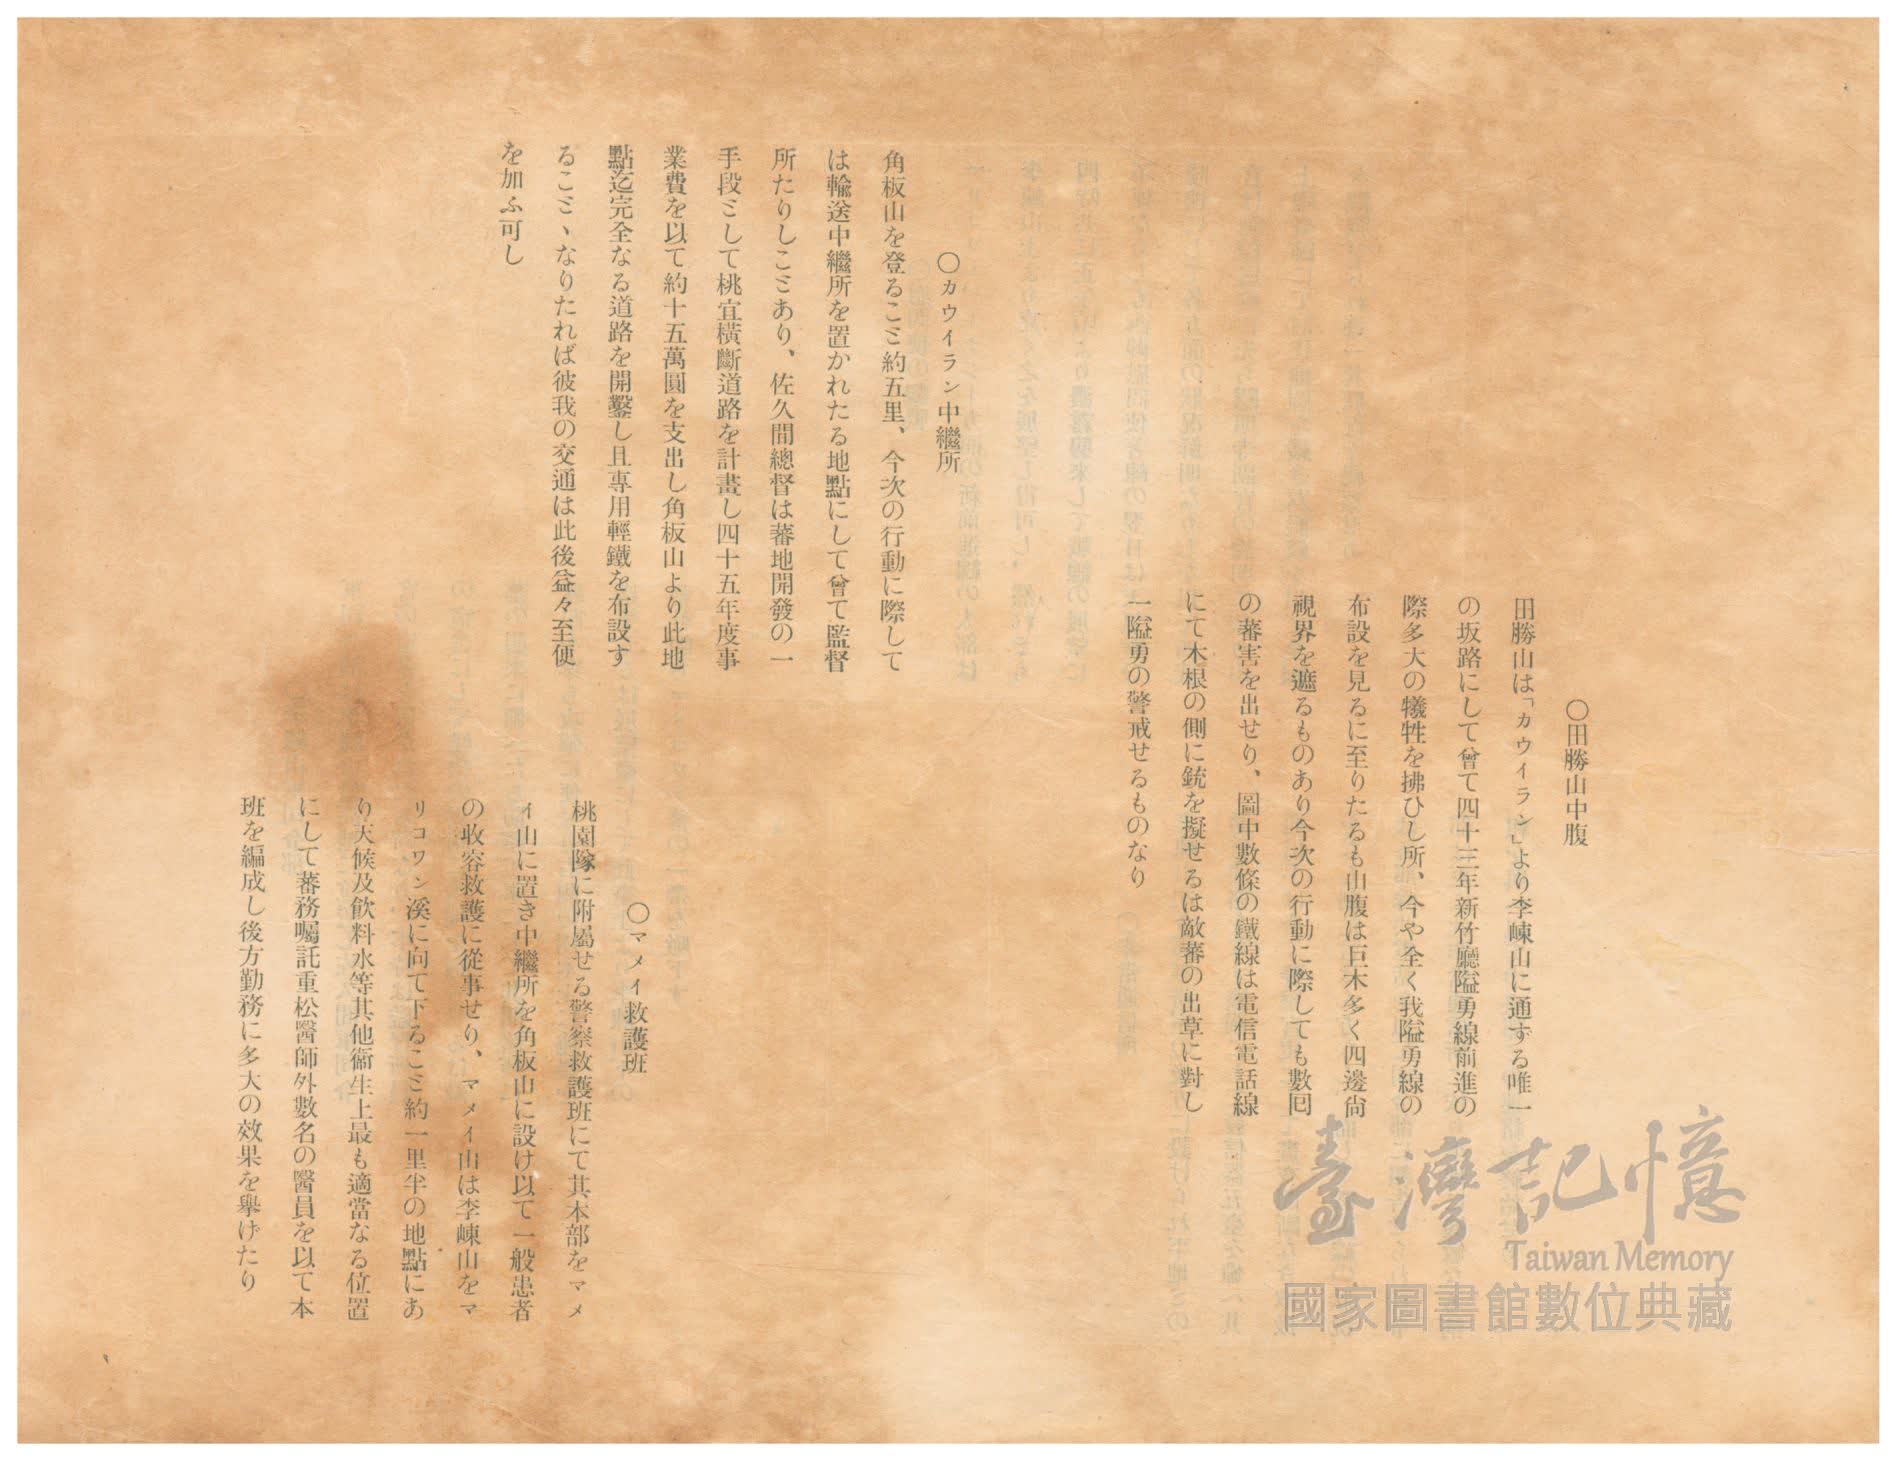 〇田勝山中腹
田勝山は「カウイラン」より李崠山に通ずる唯一
の坂路にして曾て四十三年新竹廳隘勇線前進の
際多大の犧牲を拂ひし所、今や全く我隘勇線の
布設を見るに至りたるも山腹は巨木多く四邊尙
視界を遮るものあり今次の行動に際しても數囘
の蕃害を出せり、圖中數條の鐵線は電信電話線
にて木根の側に銃を擬せるは敵蕃の出草に對し
一隘勇の警戒せるものなり
〇カウイラン中繼所
角板山を登るこミ約五里、今次の行動に際して
は輸送中繼所を置かれたる地點にして曾て監督
所たりしこミあり、佐久間總督は蕃地開發の一
手段ミして桃宜橫斷道路を計畫し四十五年度事
業費を以て約十五萬圓を支出し角板山より此地
點迄完全なる道路を開鑿し且專用輕鐵を布設す
るこミヽなりたれば彼我の交通は此後益々至便
を加ふ可し
〇マメイ救護班
桃園隊に附屬せる警察救護班にて其本部をマメ
イ山に置き中繼所を角板山に設け以て一般患者
の收容救護に從事せり、マメイ山は李崠山をマ
リコワン溪に向て下るこミ約一里半の地點にあ
り天候及飮料水等其他衞生上最も適當なる位置
にして蕃務囑託重松醫師外數名の醫員を以て本
班を編成し後方勤務に多大の效果を擧げたり
臺灣記憶
Taiwan Memory
國家圖書館數位典藏